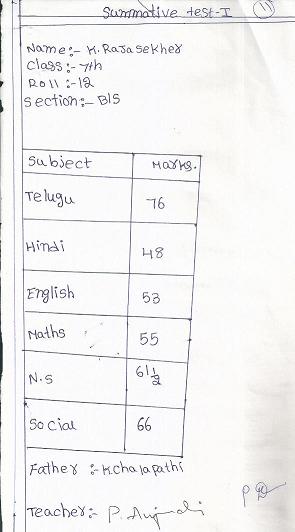 Summative test-I 11
Name:- K. Rajasekher
Class:- 7th
Roll :-12
Section:- B/S
Subject Marks.
Telugu 76
Hindi 48
English 53
Maths 55
N.S 61 1/2
Social 66
Father :- K.chalapathi
Teacher:- P.